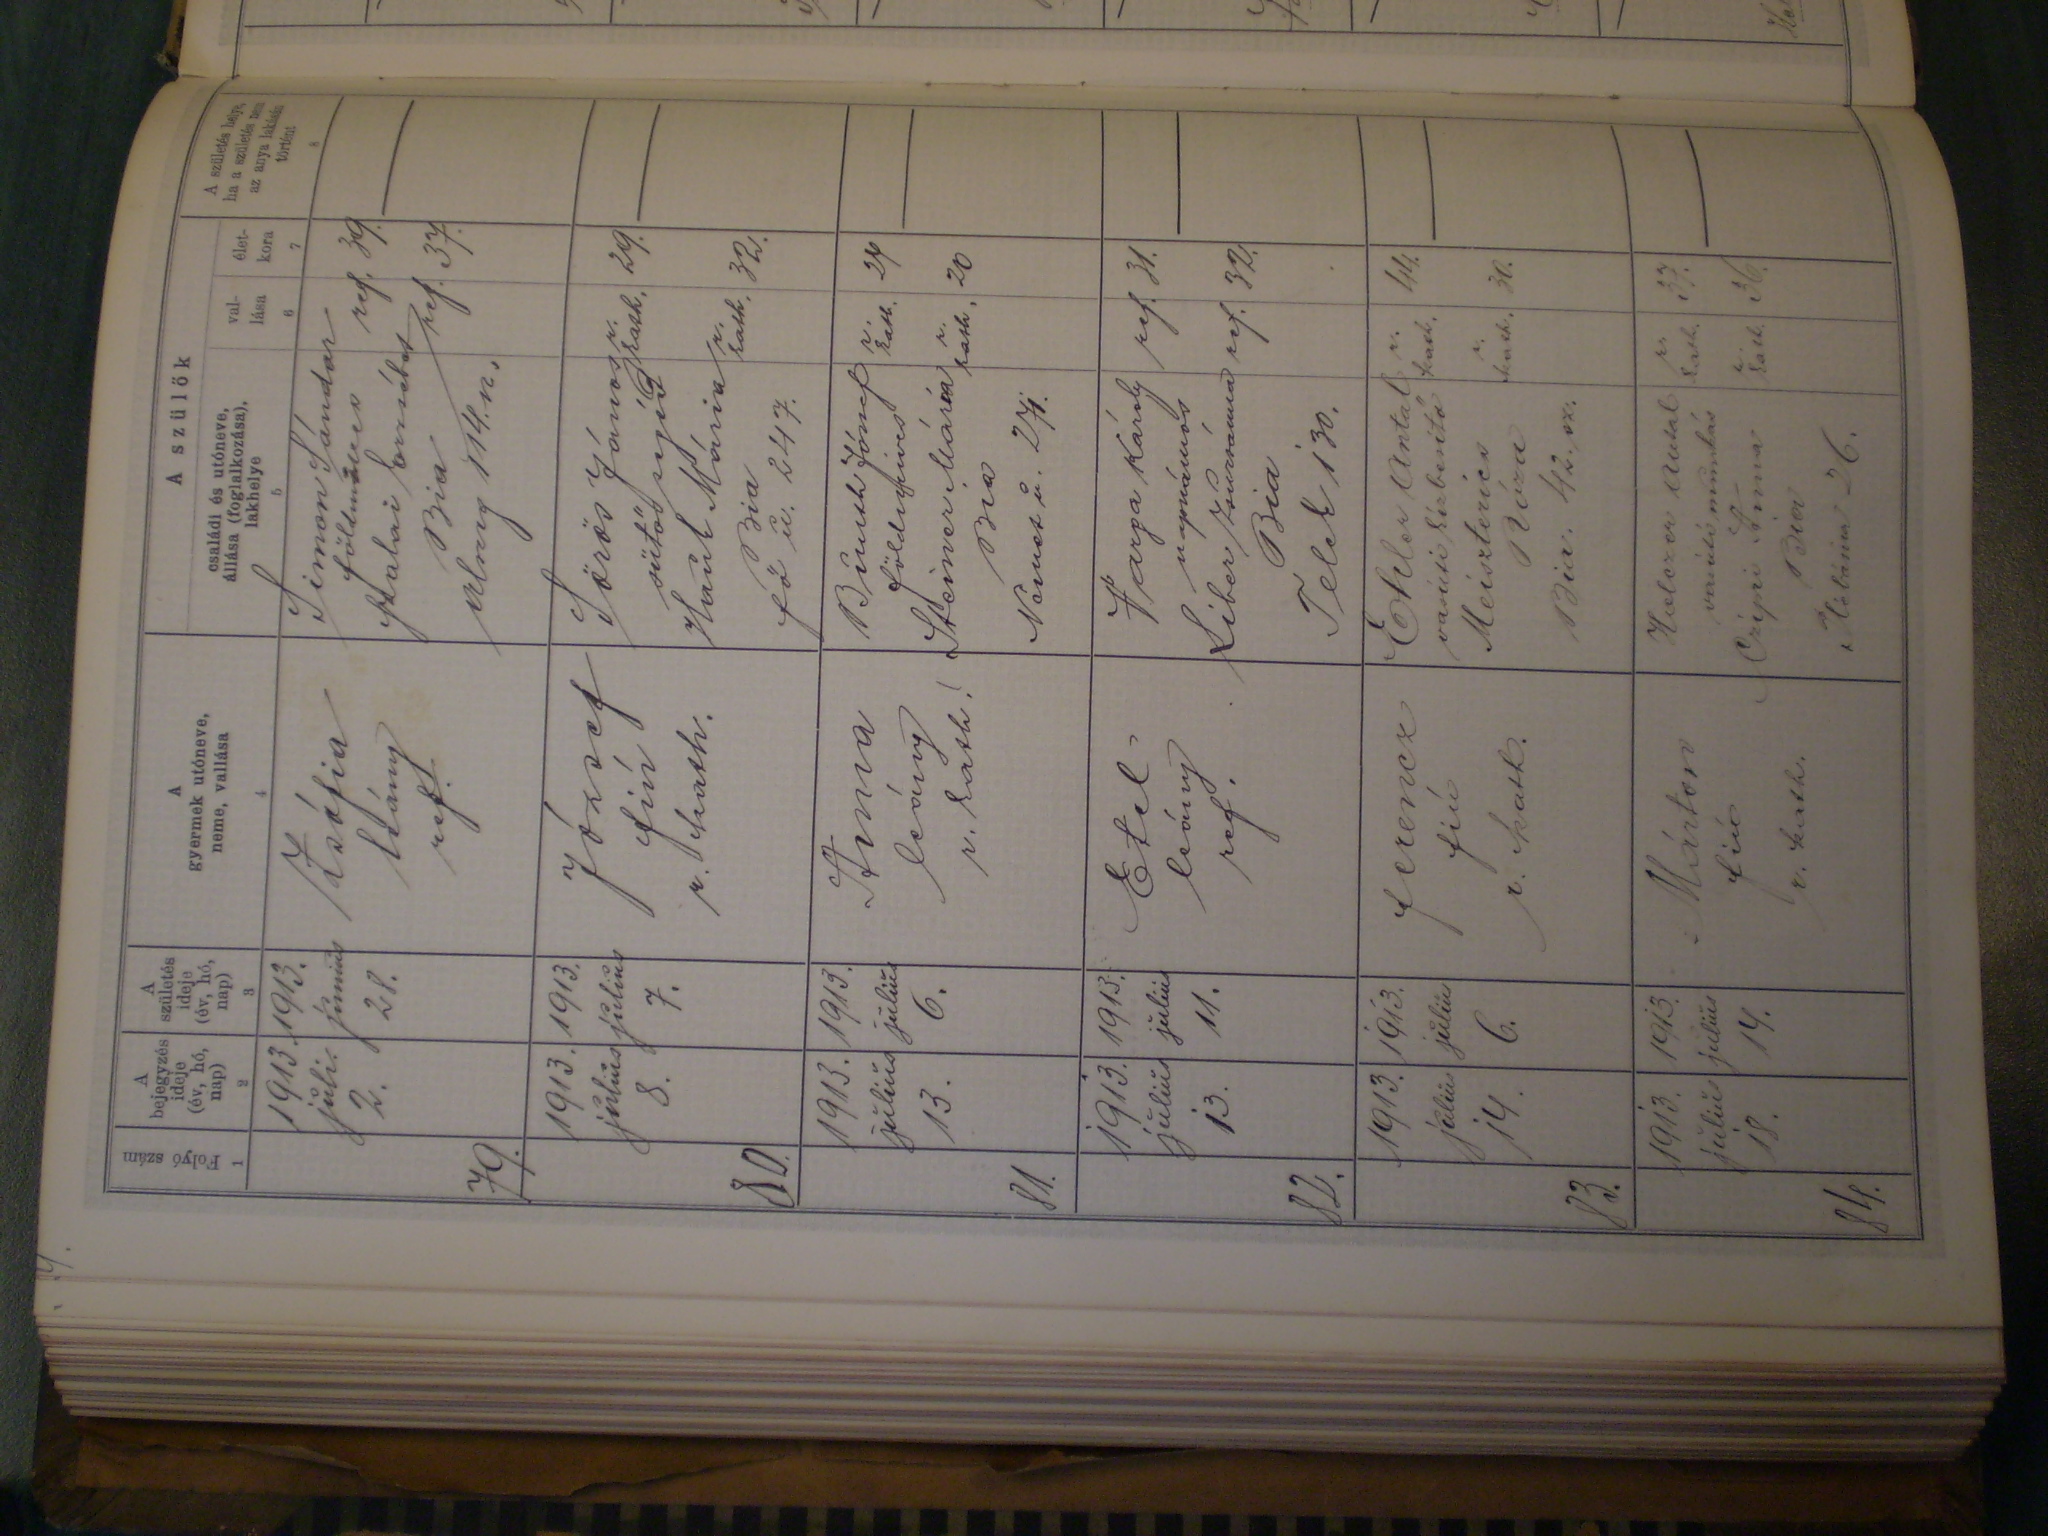 Folyó szám
A bejegyzés ideje (év, hó, nap)
A születés ideje (év, hó, nap)
A gyermek utóneve, neme, vallása
A szülők
családi és utóneve, állása (foglalkozása), lakhelye
vallása
életkora
A születés helye, ha a születés nem az anya lakásán történt
1
2
3
4
5
6
7
8
79.
1913. júli. 2.
1913. június 28.
Zsófia
leány
ref.
Simon Sándor
földműves
ref. 39.
Erzsébet
ref. 37.
Bia
114.
80.
1913. július 8.
1913. július 7.
József
fiú
r. kath.
Sörös János
sütősegéd
r. kath. 29.
Mária
r. kath. 32.
Bia
Fő u. 247.
81.
1913. július 13.
1913. július 6.
Anna
leány
r. kath.
József
földműves
r. kath. 24
Steiner Mária
r. kath. 20
Bia
Nemes u. 271.
82.
1913. július 13.
1913. július 11.
Etel
leány
ref.
Varga Károly
napszámos
ref. 31.
Liber Zsuzsanna
ref. 32.
Bia
Telek 130.
83.
1913. július 14.
1913. július 6.
Ferencz
fiú
r. kath.
Antal
vasúti kézbesítő
r. kath. 44.
Meiszterics
Róza
r. kath. 30.
Bia. 42.
84.
1913. július 18.
1913. július 14.
Márton
fiú
r. kath.
Antal
vasúti munkás
r. kath. 37.
Czipri Anna
r. kath. 36.
Bia
26.